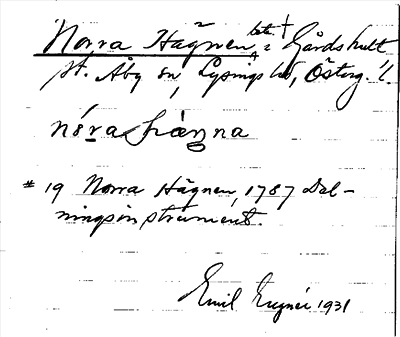 Norra Hägnen, bete i Gårdshult
St. Åby sn, Lysings hd, Österg. l.
nóra hàgna
* 19 Norra Hägnen, 1787 Del-
ningsinstrument.
Emil 1931